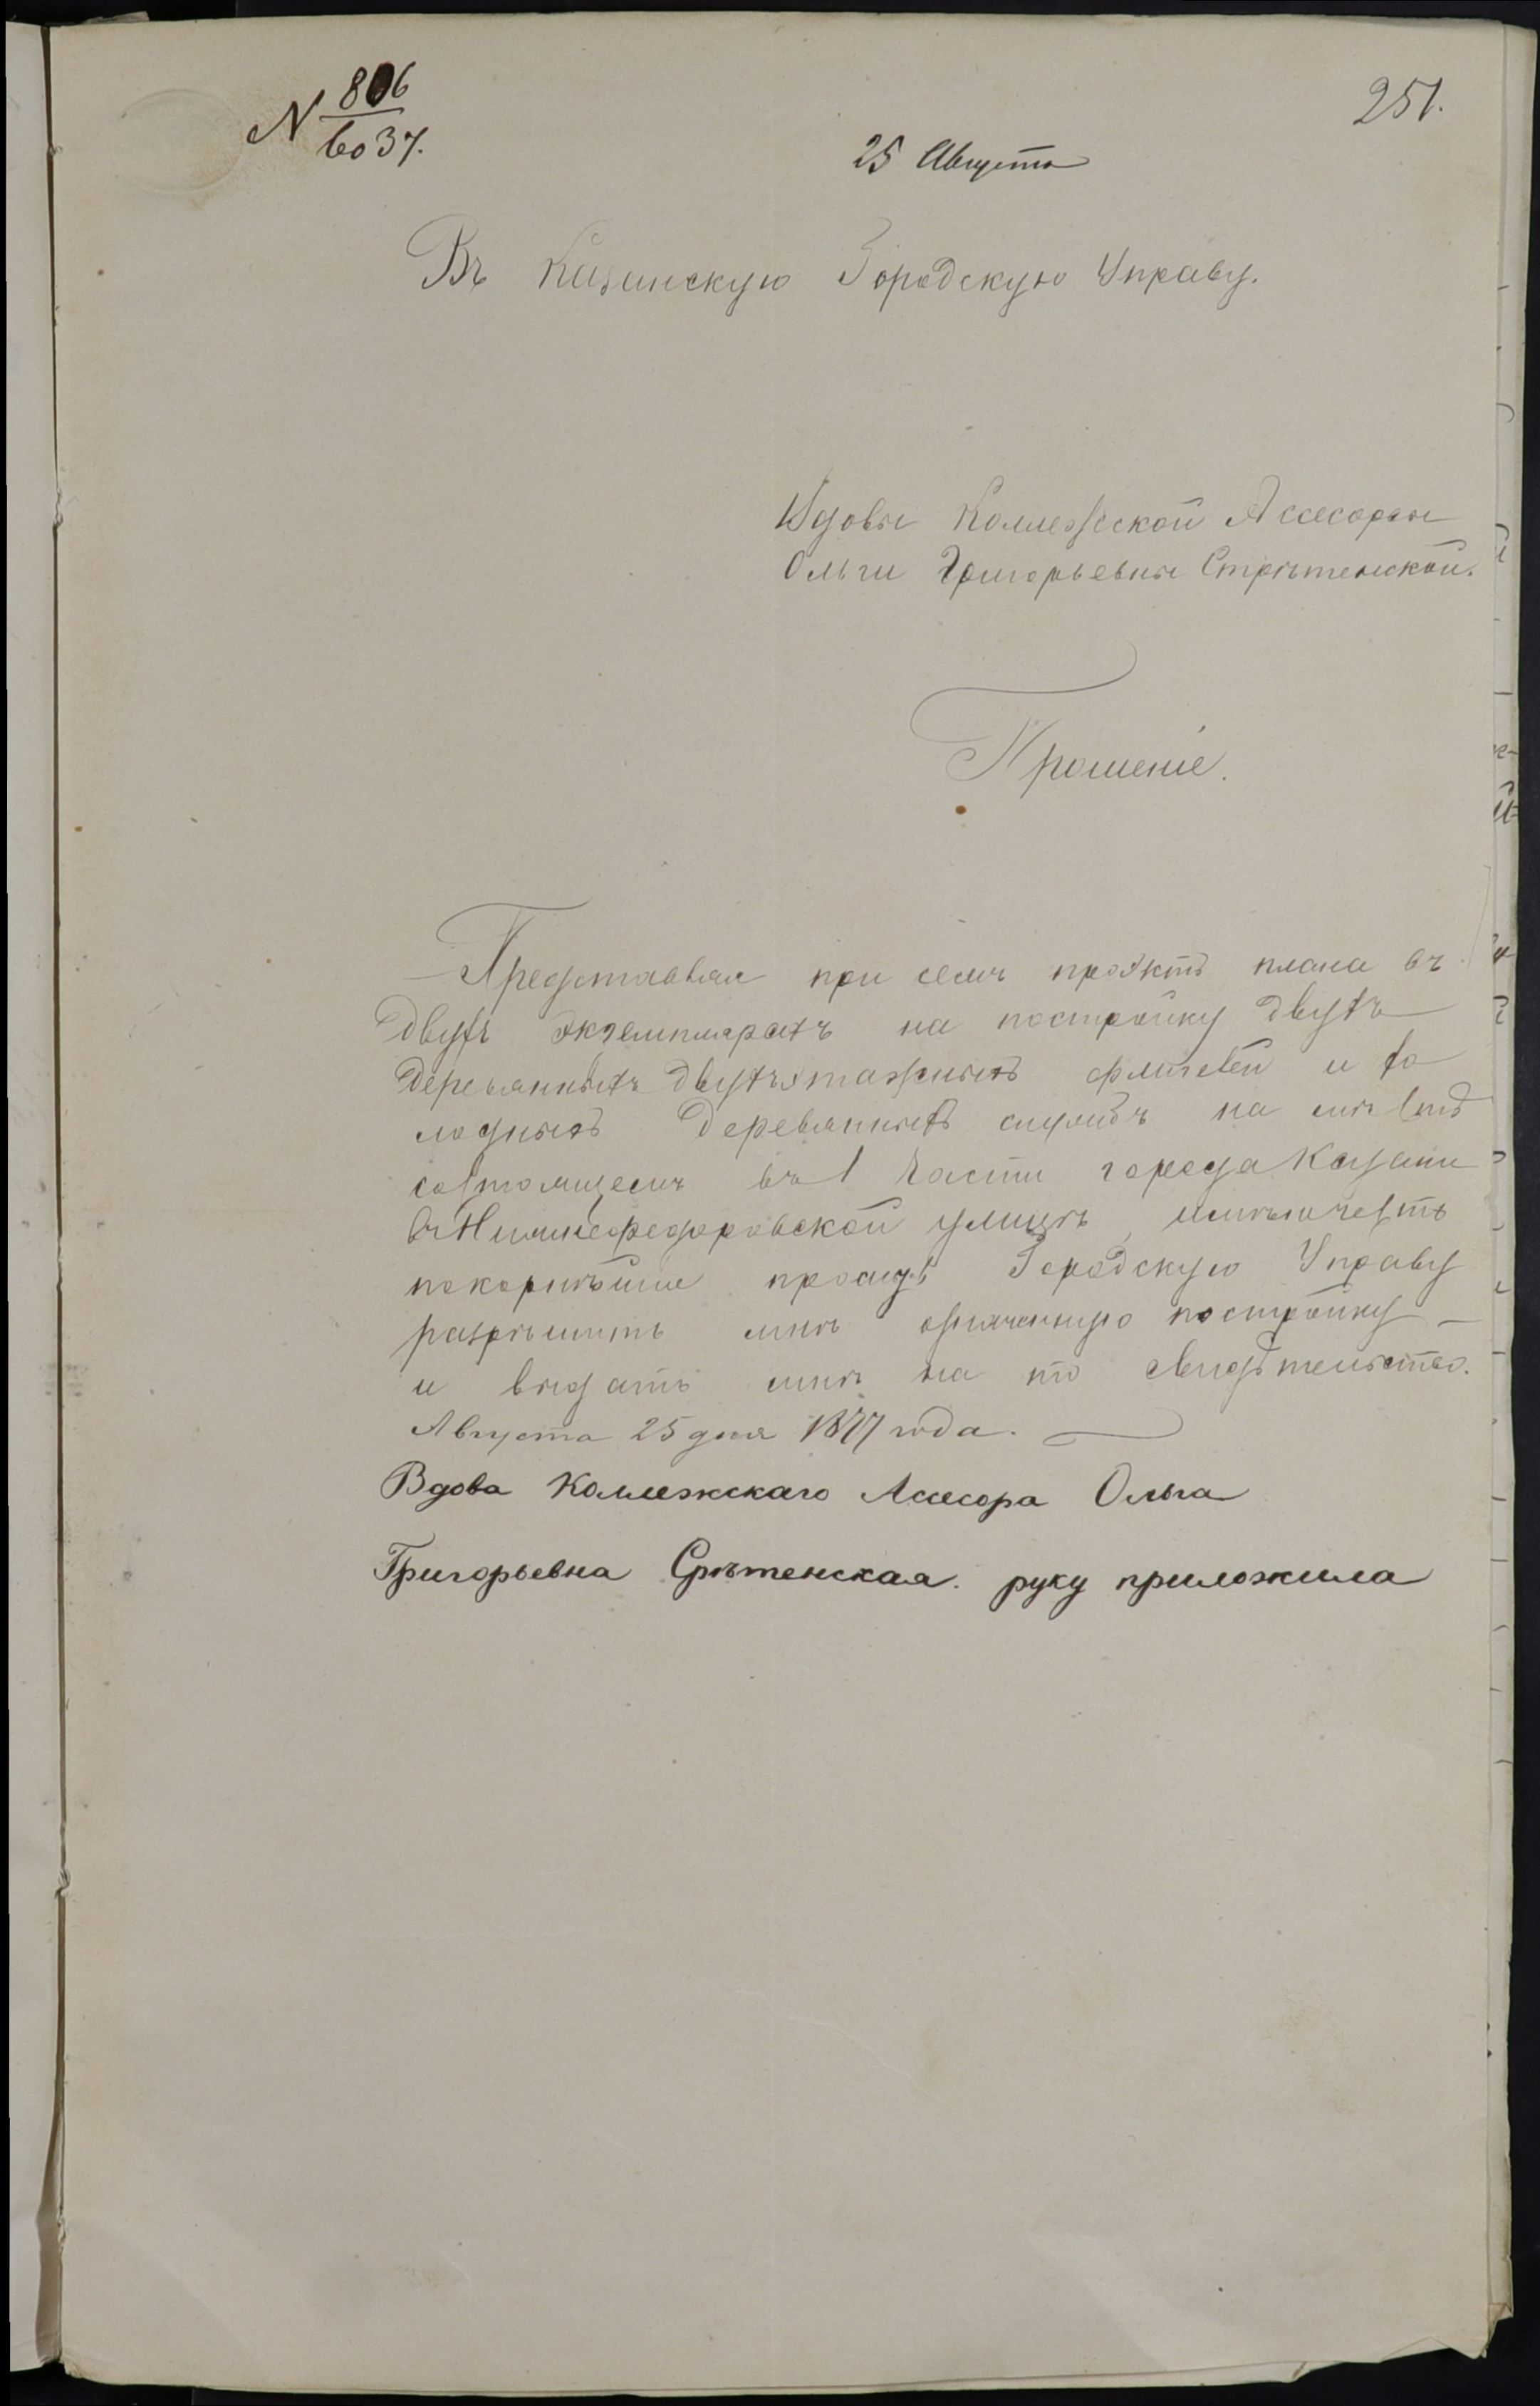 N 806
6037.
251.
25 Августа
Въ Казанскую Городскую Управу.
Вдовы Коллежской Асесоры
Ольги Григорьевны Стрѣтенской.
Прошеніе.
Представляя при семъ проэктъ плана въ
двухъ экземплярахъ на постройку двухъ
деревянныхъ двухъэтажныхъ флигелей и хо
лодныхъ деревянныхъ службъ на мѣстѣ
состоящемъ въ 1 части города Казани
въ Нижнефедоровской улицѣ, имѣю честь
покорнѣйше просить Городскую Управу
разрѣшить мнѣ означенную постройку
и выдать мнѣ на то свидѣтельство.
Августа 25 дня 1877 года.
Вдова Коллежскаго Асесора Ольга
Григорьевна Срѣтенская. руку приложила